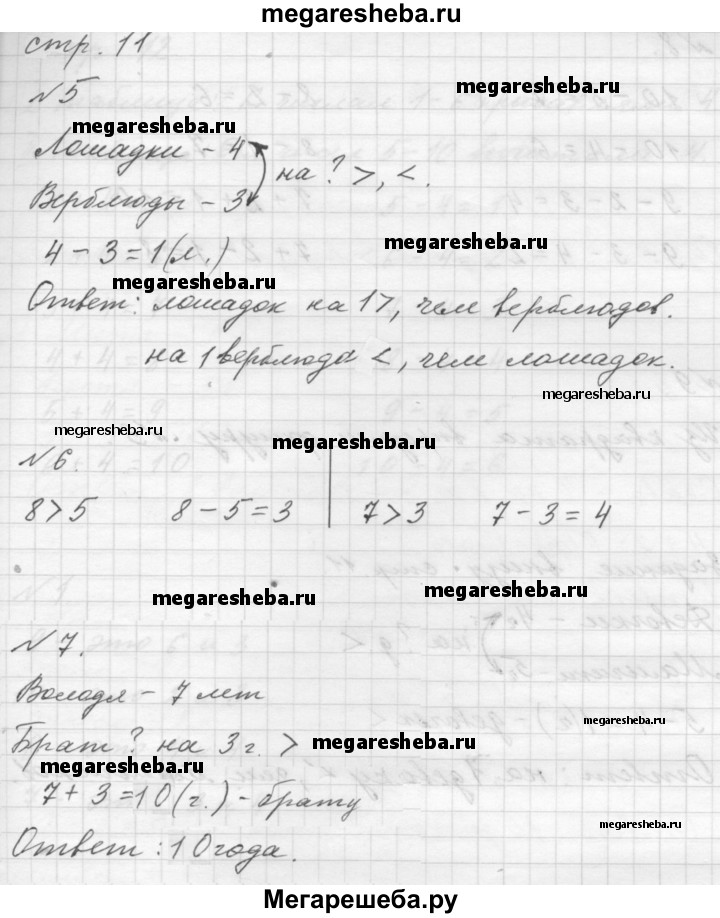 megaresheba.ru
стр. 11
№5
megaresheba.ru
megaresheba.ru
Лошадки - 4
на ? >, <.
Верблюды - 3
4 - 3 = 1 (л.)
megaresheba.ru
megaresheba.ru
Ответ: лошадок на 1 >, чем верблюдов.
на 1 верблюда <, чем лошадок.
megaresheba.ru
megaresheba.ru
megaresheba.ru
№6.
8 > 5 8 - 5 = 3 7 > 3 7 - 3 = 4
megaresheba.ru
megaresheba.ru
№7.
Володя - 7 лет
megaresheba.ru
Брат ? на 3 г. >
megaresheba.ru
megaresheba.ru
7 + 3 = 10 (г.) - брату
megaresheba.ru
Ответ: 10 года.
Мегарешеба.ру